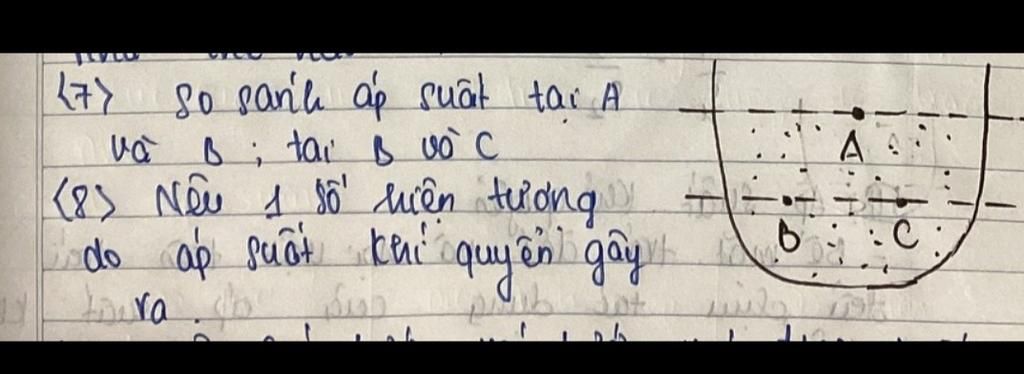 <7> so sánh áp suất tại A
và B ; tại B và C
<8> Nêu 1 số hiện tượng
do áp suất khí quyển gây
ra.
A
B
C